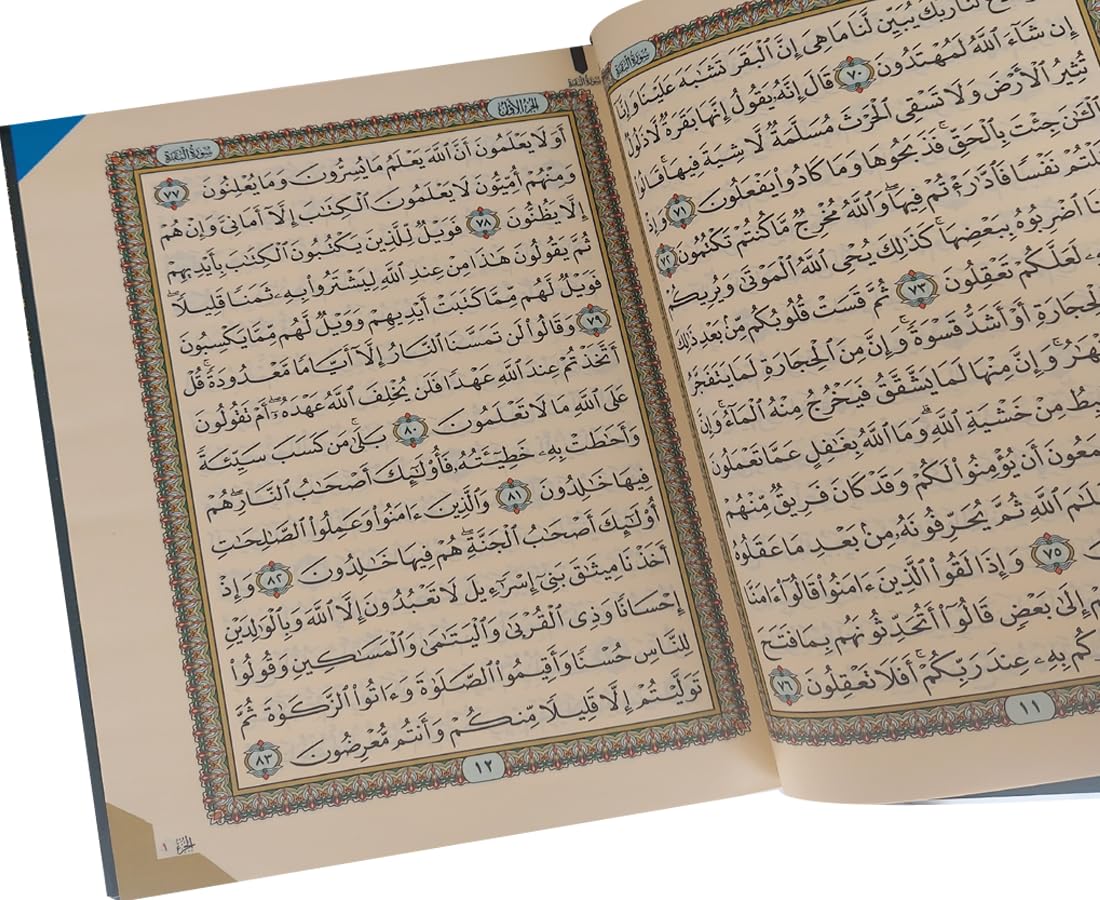 سُورَةُ البَقَرَةِ
لَّنَا رَبَّكَ يُبَيِّن لَّنَا مَا هِىَ إِنَّ ٱلْبَقَرَ تَشَـٰبَهَ عَلَيْنَا وَإِنَّآ
إِن شَآءَ ٱللَّهُ لَمُهْتَدُونَ ٧٠ قَالَ إِنَّهُۥ يَقُولُ إِنَّهَا بَقَرَةٌ لَّا ذَلُولٌ
تُثِيرُ ٱلْأَرْضَ وَلَا تَسْقِى ٱلْحَرْثَ مُسَلَّمَةٌ لَّا شِيَةَ فِيهَا ۚ قَالُوا۟
ٱلْـَٔـٰنَ جِئْتَ بِٱلْحَقِّ ۚ فَذَبَحُوهَا وَمَا كَادُوا۟ يَفْعَلُونَ ٧١ وَإِذْ
نَفْسًا فَٱدَّٰرَْٰٔتُمْ فِيهَا ۖ وَٱللَّهُ مُخْرِجٌ مَّا كُنتُمْ تَكْتُمُونَ ٧٢
ٱضْرِبُوهُ بِبَعْضِهَا ۚ كَذَٰلِكَ يُحْىِ ٱللَّهُ ٱلْمَوْتَىٰ وَيُرِيكُمْ
لَعَلَّكُمْ تَعْقِلُونَ ٧٣ ثُمَّ قَسَتْ قُلُوبُكُم مِّنۢ بَعْدِ ذَٰلِكَ
ٱلْحِجَارَةِ أَوْ أَشَدُّ قَسْوَةً ۚ وَإِنَّ مِنَ ٱلْحِجَارَةِ لَمَا يَتَفَجَّرُ
وَإِنَّ مِنْهَا لَمَا يَشَّقَّقُ فَيَخْرُجُ مِنْهُ ٱلْمَآءُ ۚ وَإِنَّ
مِنْ خَشْيَةِ ٱللَّهِ ۗ وَمَا ٱللَّهُ بِغَـٰفِلٍ عَمَّا تَعْمَلُونَ
أَن يُؤْمِنُوا۟ لَكُمْ وَقَدْ كَانَ فَرِيقٌ مِّنْهُمْ
ٱللَّهِ ثُمَّ يُحَرِّفُونَهُۥ مِنۢ بَعْدِ مَا عَقَلُوهُ
٧٥ وَإِذَا لَقُوا۟ ٱلَّذِينَ ءَامَنُوا۟ قَالُوٓا۟ ءَامَنَّا
إِلَىٰ بَعْضٍ قَالُوٓا۟ أَتُحَدِّثُونَهُم بِمَا فَتَحَ
بِهِۦ عِندَ رَبِّكُمْ ۚ أَفَلَا تَعْقِلُونَ ٧٦
١١
الجُزْءُ الأوَّلُ
سُورَةُ البَقَرَةِ
أَوَلَا يَعْلَمُونَ أَنَّ ٱللَّهَ يَعْلَمُ مَا يُسِرُّونَ وَمَا يُعْلِنُونَ ٧٧
وَمِنْهُمْ أُمِّيُّونَ لَا يَعْلَمُونَ ٱلْكِتَـٰبَ إِلَّآ أَمَانِىَّ وَإِنْ هُمْ
إِلَّا يَظُنُّونَ ٧٨ فَوَيْلٌ لِّلَّذِينَ يَكْتُبُونَ ٱلْكِتَـٰبَ بِأَيْدِيهِمْ
ثُمَّ يَقُولُونَ هَـٰذَا مِنْ عِندِ ٱللَّهِ لِيَشْتَرُوا۟ بِهِۦ ثَمَنًا قَلِيلًا ۖ
فَوَيْلٌ لَّهُم مِّمَّا كَتَبَتْ أَيْدِيهِمْ وَوَيْلٌ لَّهُم مِّمَّا يَكْسِبُونَ
٧٩ وَقَالُوا۟ لَن تَمَسَّنَا ٱلنَّارُ إِلَّآ أَيَّامًا مَّعْدُودَةً ۚ قُلْ
أَتَّخَذْتُمْ عِندَ ٱللَّهِ عَهْدًا فَلَن يُخْلِفَ ٱللَّهُ عَهْدَهُۥٓ ۖ أَمْ تَقُولُونَ
عَلَى ٱللَّهِ مَا لَا تَعْلَمُونَ ٨٠ بَلَىٰ ۚ مَن كَسَبَ سَيِّئَةً
وَأَحَـٰطَتْ بِهِۦ خَطِيٓـَٔتُهُۥ فَأُو۟لَـٰٓئِكَ أَصْحَـٰبُ ٱلنَّارِ ۖ هُمْ
فِيهَا خَـٰلِدُونَ ٨١ وَٱلَّذِينَ ءَامَنُوا۟ وَعَمِلُوا۟ ٱلصَّـٰلِحَـٰتِ
أُو۟لَـٰٓئِكَ أَصْحَـٰبُ ٱلْجَنَّةِ ۖ هُمْ فِيهَا خَـٰلِدُونَ ٨٢ وَإِذْ
أَخَذْنَا مِيثَـٰقَ بَنِىٓ إِسْرَٰٓءِيلَ لَا تَعْبُدُونَ إِلَّا ٱللَّهَ وَبِٱلْوَٰلِدَيْنِ
إِحْسَانًا وَذِى ٱلْقُرْبَىٰ وَٱلْيَتَـٰمَىٰ وَٱلْمَسَـٰكِينِ وَقُولُوا۟
لِلنَّاسِ حُسْنًا وَأَقِيمُوا۟ ٱلصَّلَوٰةَ وَءَاتُوا۟ ٱلزَّكَوٰةَ ثُمَّ
تَوَلَّيْتُمْ إِلَّا قَلِيلًا مِّنكُمْ وَأَنتُم مُّعْرِضُونَ ٨٣
١٢
الجزء ١